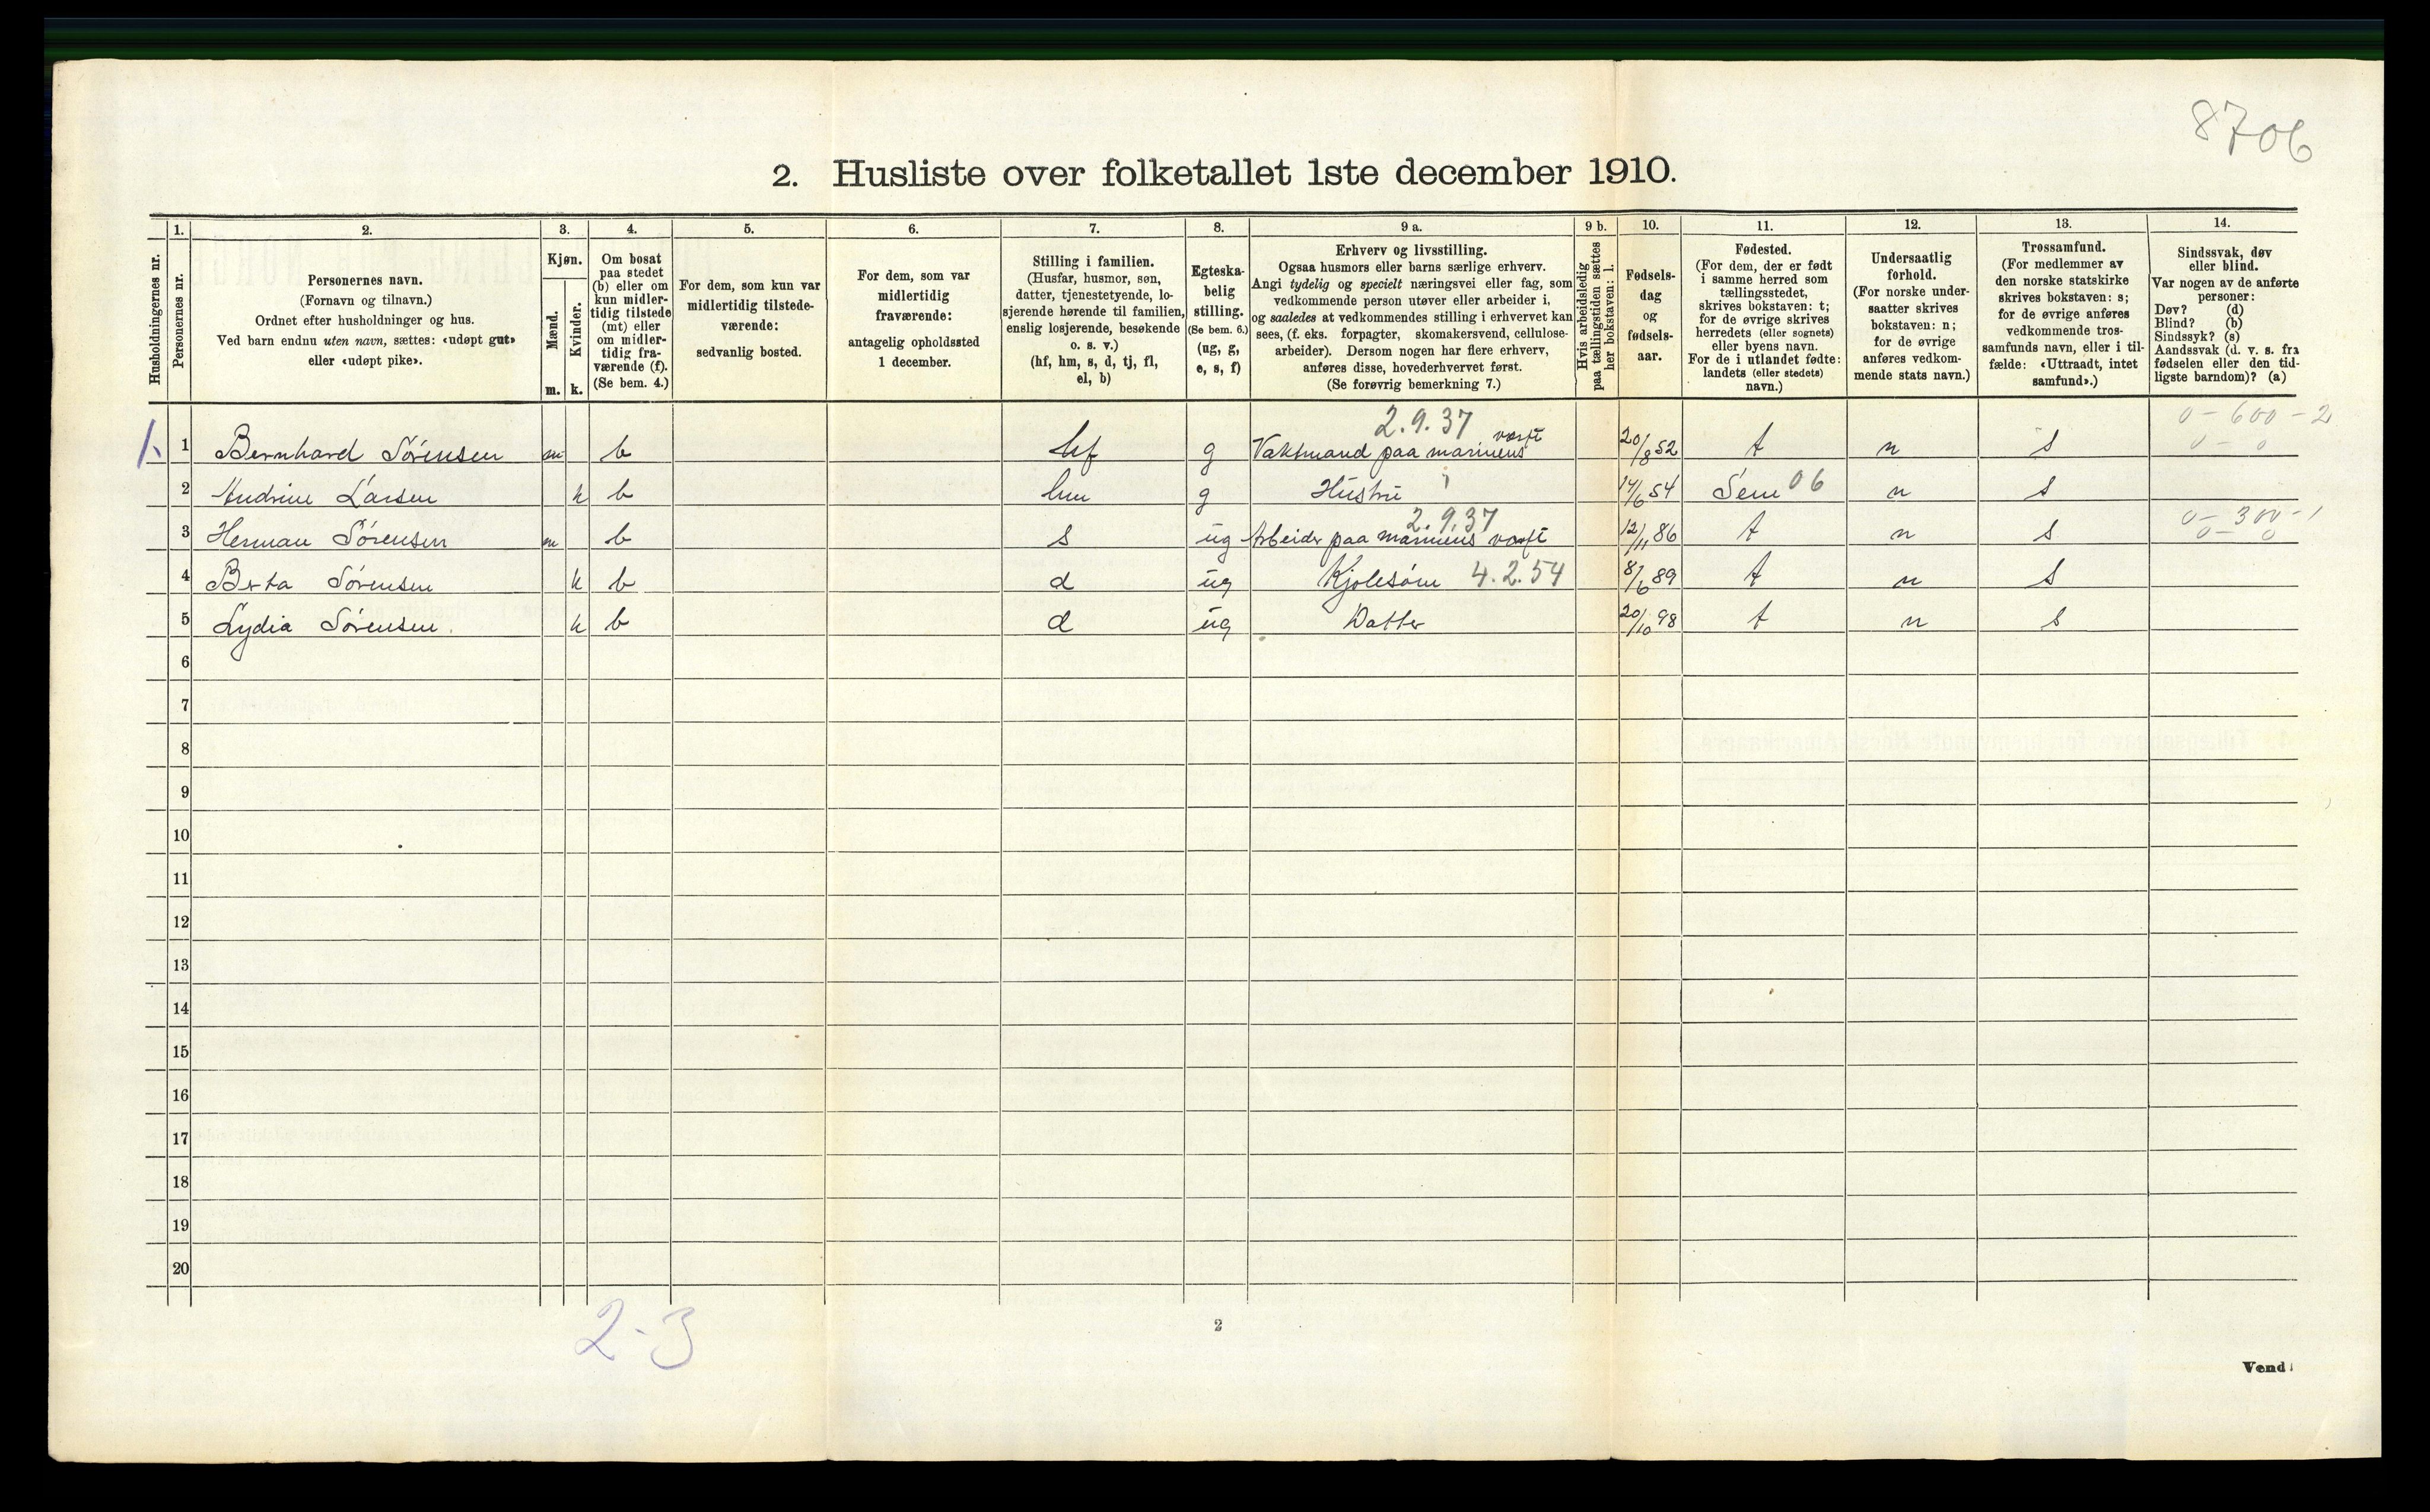 8706
2. Husliste over folketallet 1ste december 1910.
Husholdningernes nr.
1.
Personernes nr.
2.
Personernes navn.
(Fornavn og tilnavn.)
Ordnet efter husholdninger og hus.
Ved barn endnu uten navn, sættes: «udøpt gut»
eller «udøpt pike».
3.
Kjøn.
Mænd.
m.
Kvinder.
k.
4.
Om bosat
paa stedet
(b) eller om
kun midler-
tidig tilstede
(mt) eller
om midler-
tidig fra-
værende (f).
(Se bem. 4.)
5.
For dem, som kun var
midlertidig tilstede-
værende:
sedvanlig bosted.
6.
For dem, som var
midlertidig
fraværende:
antagelig opholdssted
1 december.
7.
Stilling i familien.
(Husfar, husmor, søn,
datter, tjenestetyende, lo-
sjerende hørende til familien,
enslig losjerende, besøkende
o. s. v.)
(hf, hm, s, d, tj, fl,
el, b)
8.
Egteska-
belig
stilling.
(Se bem. 6.)
(ug, g,
e, s, f)
9 a.
Erhverv og livsstilling.
Ogsaa husmors eller barns særlige erhverv.
Angi tydelig og specielt næringsvei eller fag, som
vedkommende person utøver eller arbeider i,
og saaledes at vedkommendes stilling i erhvervet kan
sees, (f. eks. forpagter, skomakersvend, cellulose-
arbeider). Dersom nogen har flere erhverv,
anføres disse, hovederhvervet først.
(Se forøvrig bemerkning 7.)
9 b.
Hvis arbeidsledig
paa tællingstiden sættes
her bokstaven: l.
10.
Fødsels-
dag
og
fødsels-
aar.
11.
Fødested.
(For dem, der er født
i samme herred som
tællingsstedet,
skrives bokstaven: t;
for de øvrige skrives
herredets (eller sognets)
eller byens navn.
For de i utlandet fødte:
landets (eller stedets)
navn.)
12.
Undersaatlig
forhold.
(For norske under-
saatter skrives
bokstaven: n;
for de øvrige
anføres vedkom-
mende stats navn.)
13.
Trossamfund.
(For medlemmer av
den norske statskirke
skrives bokstaven: s;
for de øvrige anføres
vedkommende tros-
samfunds navn, eller i til-
fælde: «Uttraadt, intet
samfund».)
14.
Sindssvak, døv
eller blind.
Var nogen av de anførte
personer:
Døv? (d)
Blind? (b)
Sindssyk? (s)
Aandssvak (d. v. s. fra
fødselen eller den tid-
ligste barndom)? (a)
2.9.37 0-600-2
1. 1 Bernhard Sörensen m b hf g Vaktmand paa marinens værft 20/8 52 t n s 0-0
2 Andrine Larsen k b hm g Hustru 14/6 54 Sem 06 n s
2.9.37 0-300-1
3 Herman Sörensen m b s ug Arbeider paa marinens værft 12/11 86 t n s 0-0
4 Berta Sörensen k b d ug Kjolesöm 4.2.54 8/6 89 t n s
5 Lydia Sörensen. k b d ug Datter 20/10 98 t n s
6
7
8
9
10
11
12
13
14
15
16
17
18
19
20
2-3
2
Vend!